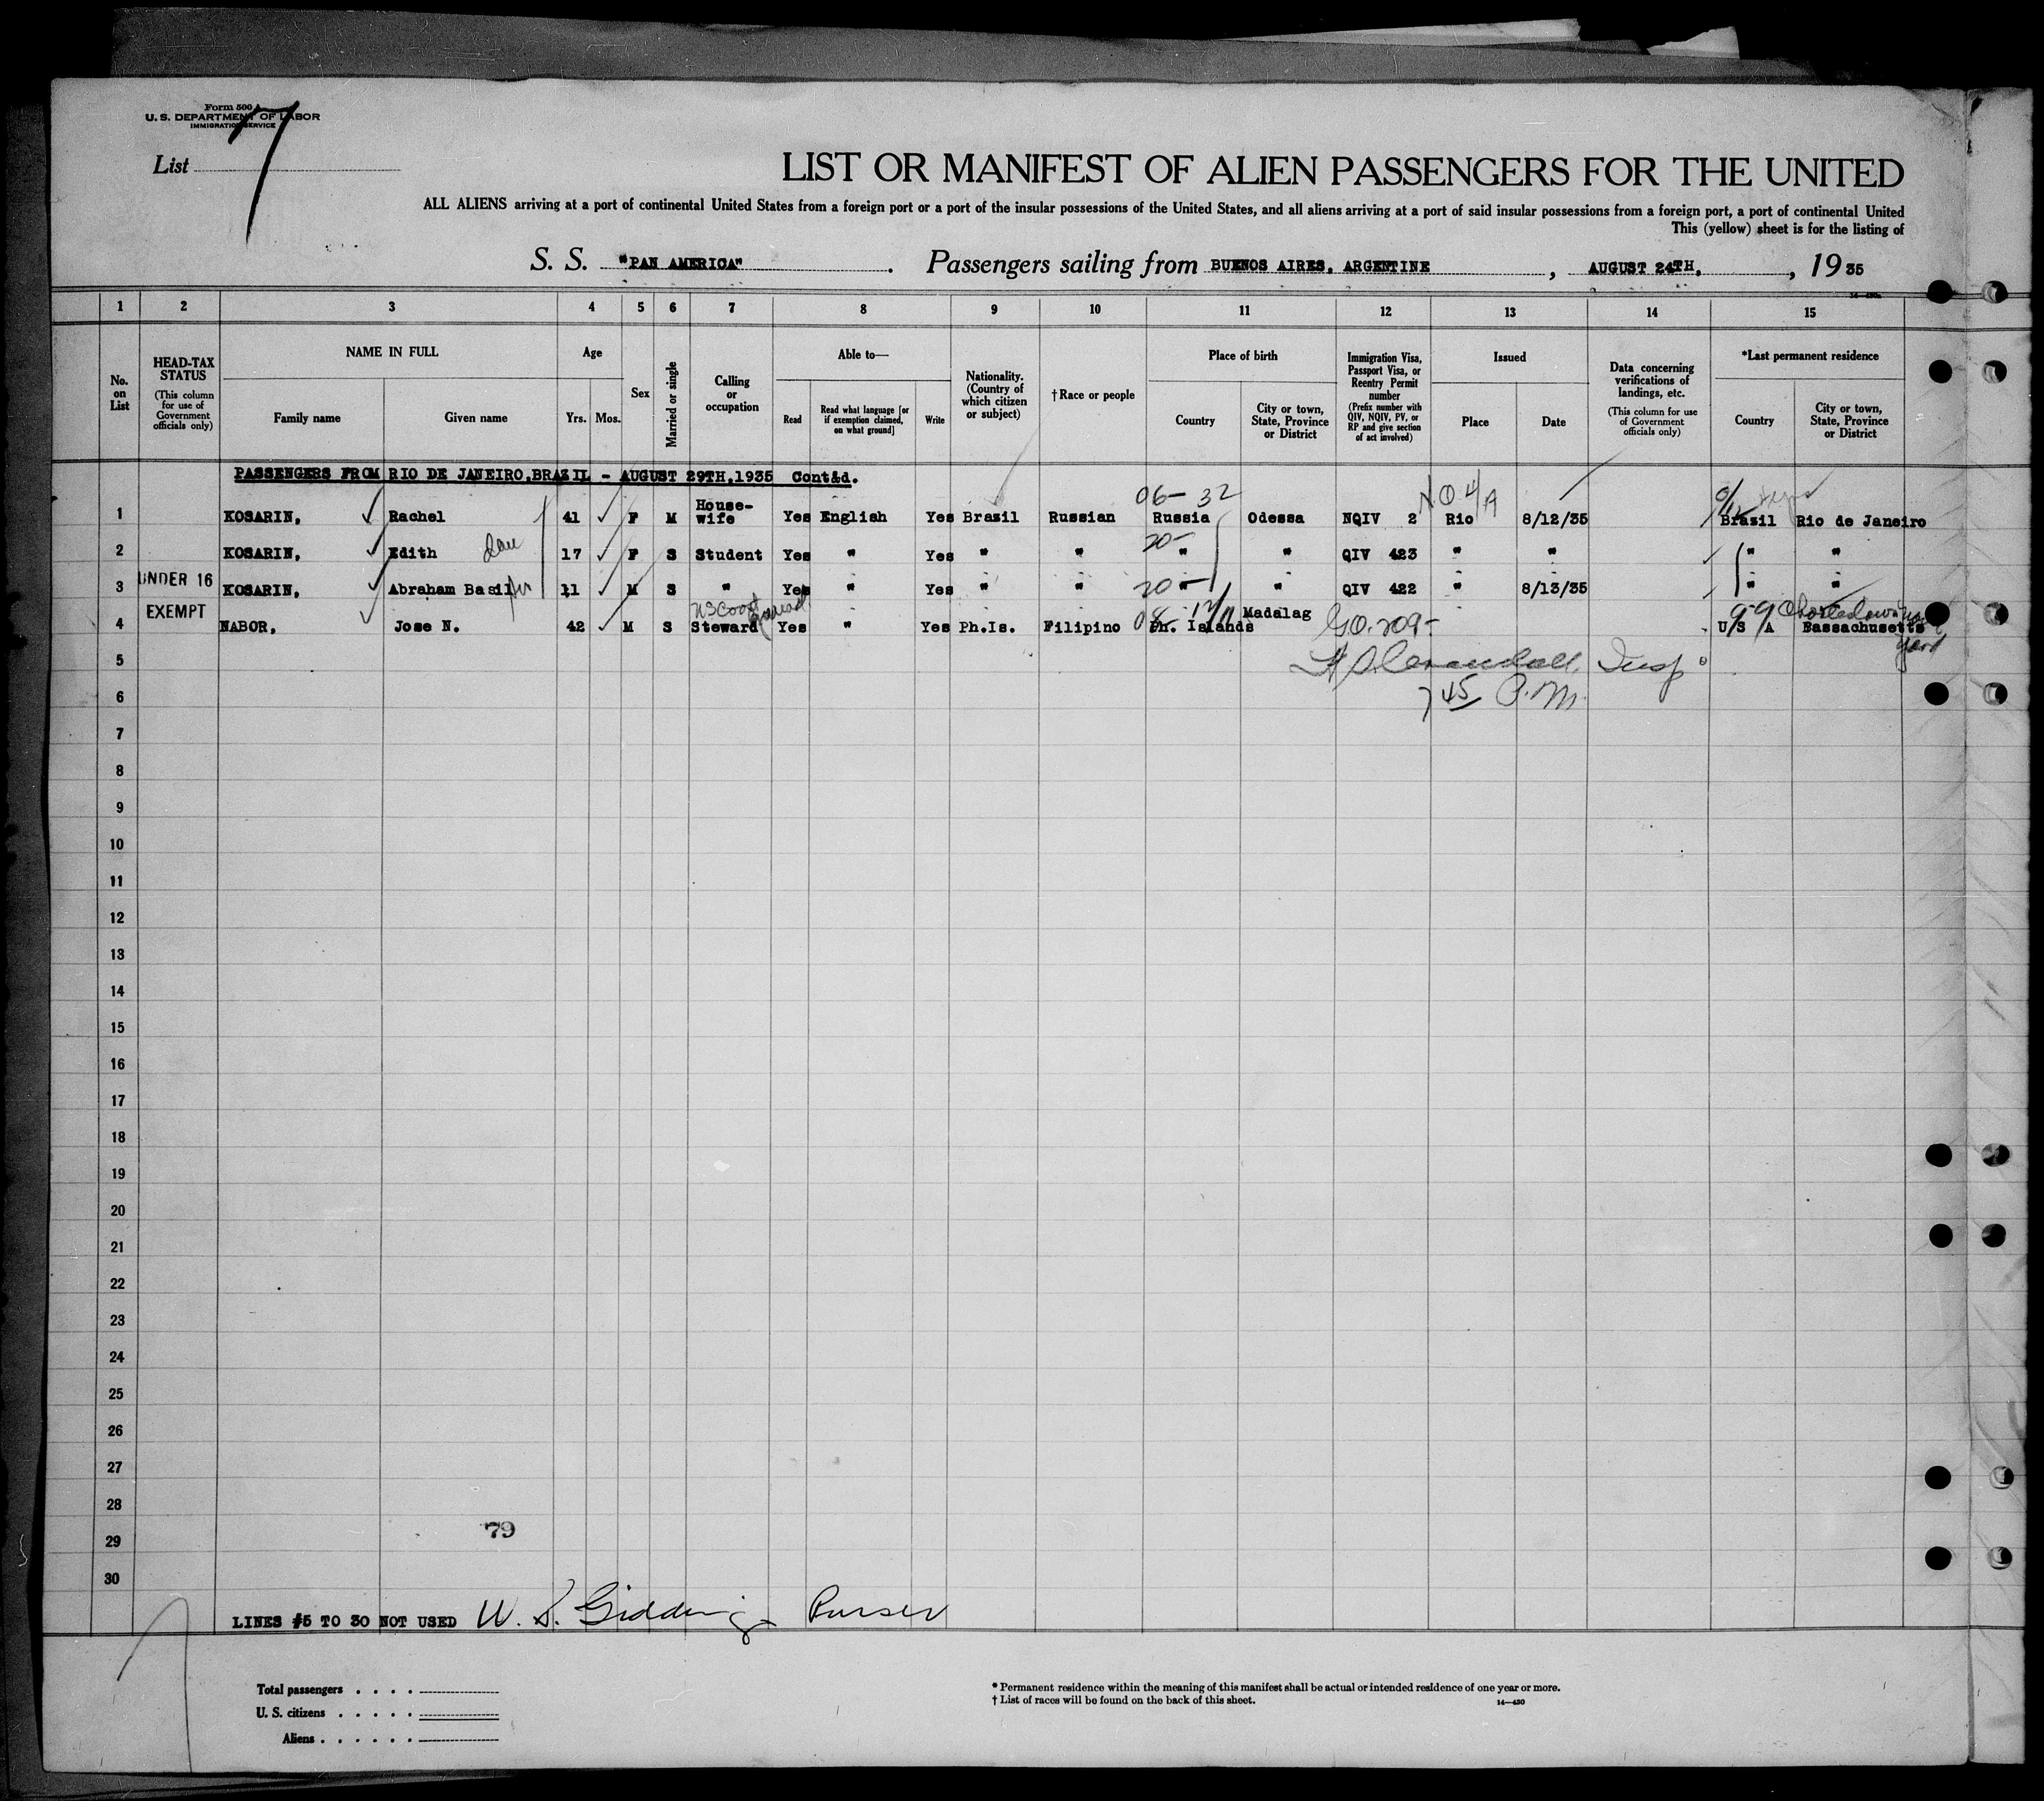 Form 500 A
U. S. DEPARTMENT OF LABOR
IMMIGRATION SERVICE
List 7
LIST OR MANIFEST OF ALIEN PASSENGERS FOR THE UNITED
ALL ALIENS arriving at a port of continental United States from a foreign port or a port of the insular possessions of the United States, and all aliens arriving at a port of said insular possessions from a foreign port, a port of continental United
This (yellow) sheet is for the listing of
S. S. "PAN AMERICA" . Passengers sailing from BUENOS AIRES, ARGENTINE , AUGUST 24TH, , 19 35
1 2 3 4 5 6 7 8 9 10 11 12 13 14 15
No. on List
HEAD-TAX STATUS (This column for use of Government officials only)
NAME IN FULL
Family name Given name
Age
Yrs. Mos.
Sex
Married or single
Calling or occupation
Able to—
Read
Read what language [or if exemption claimed, on what ground]
Write
Nationality. (Country of which citizen or subject)
†Race or people
Place of birth
Country
City or town, State, Province or District
Immigration Visa, Passport Visa, or Reentry Permit number (Prefix number with QIV, NQIV, PV, or RP and give section of act involved)
Issued
Place Date
Data concerning verifications of landings, etc. (This column for use of Government officials only)
*Last permanent residence
Country
City or town, State, Province or District
PASSENGERS FROM RIO DE JANEIRO, BRAZIL - AUGUST 29TH, 1935 Cont&d.
06- 32
1 KOSARIN, Rachel 41 F M House-wife Yes English Yes Brazil Russian Russia Odessa NQIV 2 Rio 8/12/35 Brazil Rio de Janeiro
20-
2 KOSARIN, Edith dau 17 F S Student Yes " Yes " " " " QIV 423 " " " "
UNDER 16
20-
3 KOSARIN, Abraham Basil 11 M S " Yes " Yes " " " " QIV 422 " 8/13/35 " "
EXEMPT
US Coast Guard
4 NABOR, Jose N. 42 M S Steward Yes " Yes Ph.Is. Filipino Ph. Islands Madalag G.O. 209- U S A Bassachusetts
99 Charlestown Navy Yard
5 Insp
6 7 45 P.M.
7
8
9
10
11
12
13
14
15
16
17
18
19
20
21
22
23
24
25
26
27
28
79
29
30
LINES #5 TO 30 NOT USED W. S. Giddings Purser
Total passengers . . . .
U. S. citizens . . . . .
Aliens . . . . . .
* Permanent residence within the meaning of this manifest shall be actual or intended residence of one year or more.
† List of races will be found on the back of this sheet.
14—430